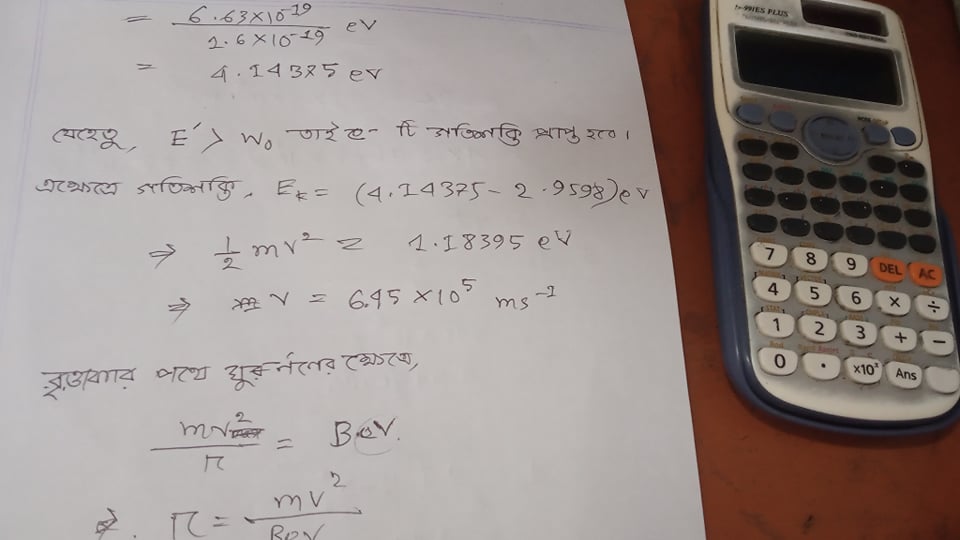 = 6.63×10⁻¹⁹ / 1.6×10⁻¹⁹ eV
= 4.14375 eV
যেহেতু, E′ > W₀ তাই e⁻ টি গতিশক্তি প্রাপ্ত হবে।
এক্ষেত্রে গতিশক্তি, Eₖ = (4.14375 - 2.9598) eV
⇒ 1/2 mv² = 1.18395 eV
⇒ v = 6.45 ×10⁵ ms⁻¹
বৃত্তাকার পথে ঘুর্ণনের ক্ষেত্রে,
mv² / r = Bev.
⇒ r = mv² / Bev
fx-991ES PLUS
7 8 9 DEL AC
4 5 6 × ÷
1 2 3 + −
0 . ×10ˣ Ans